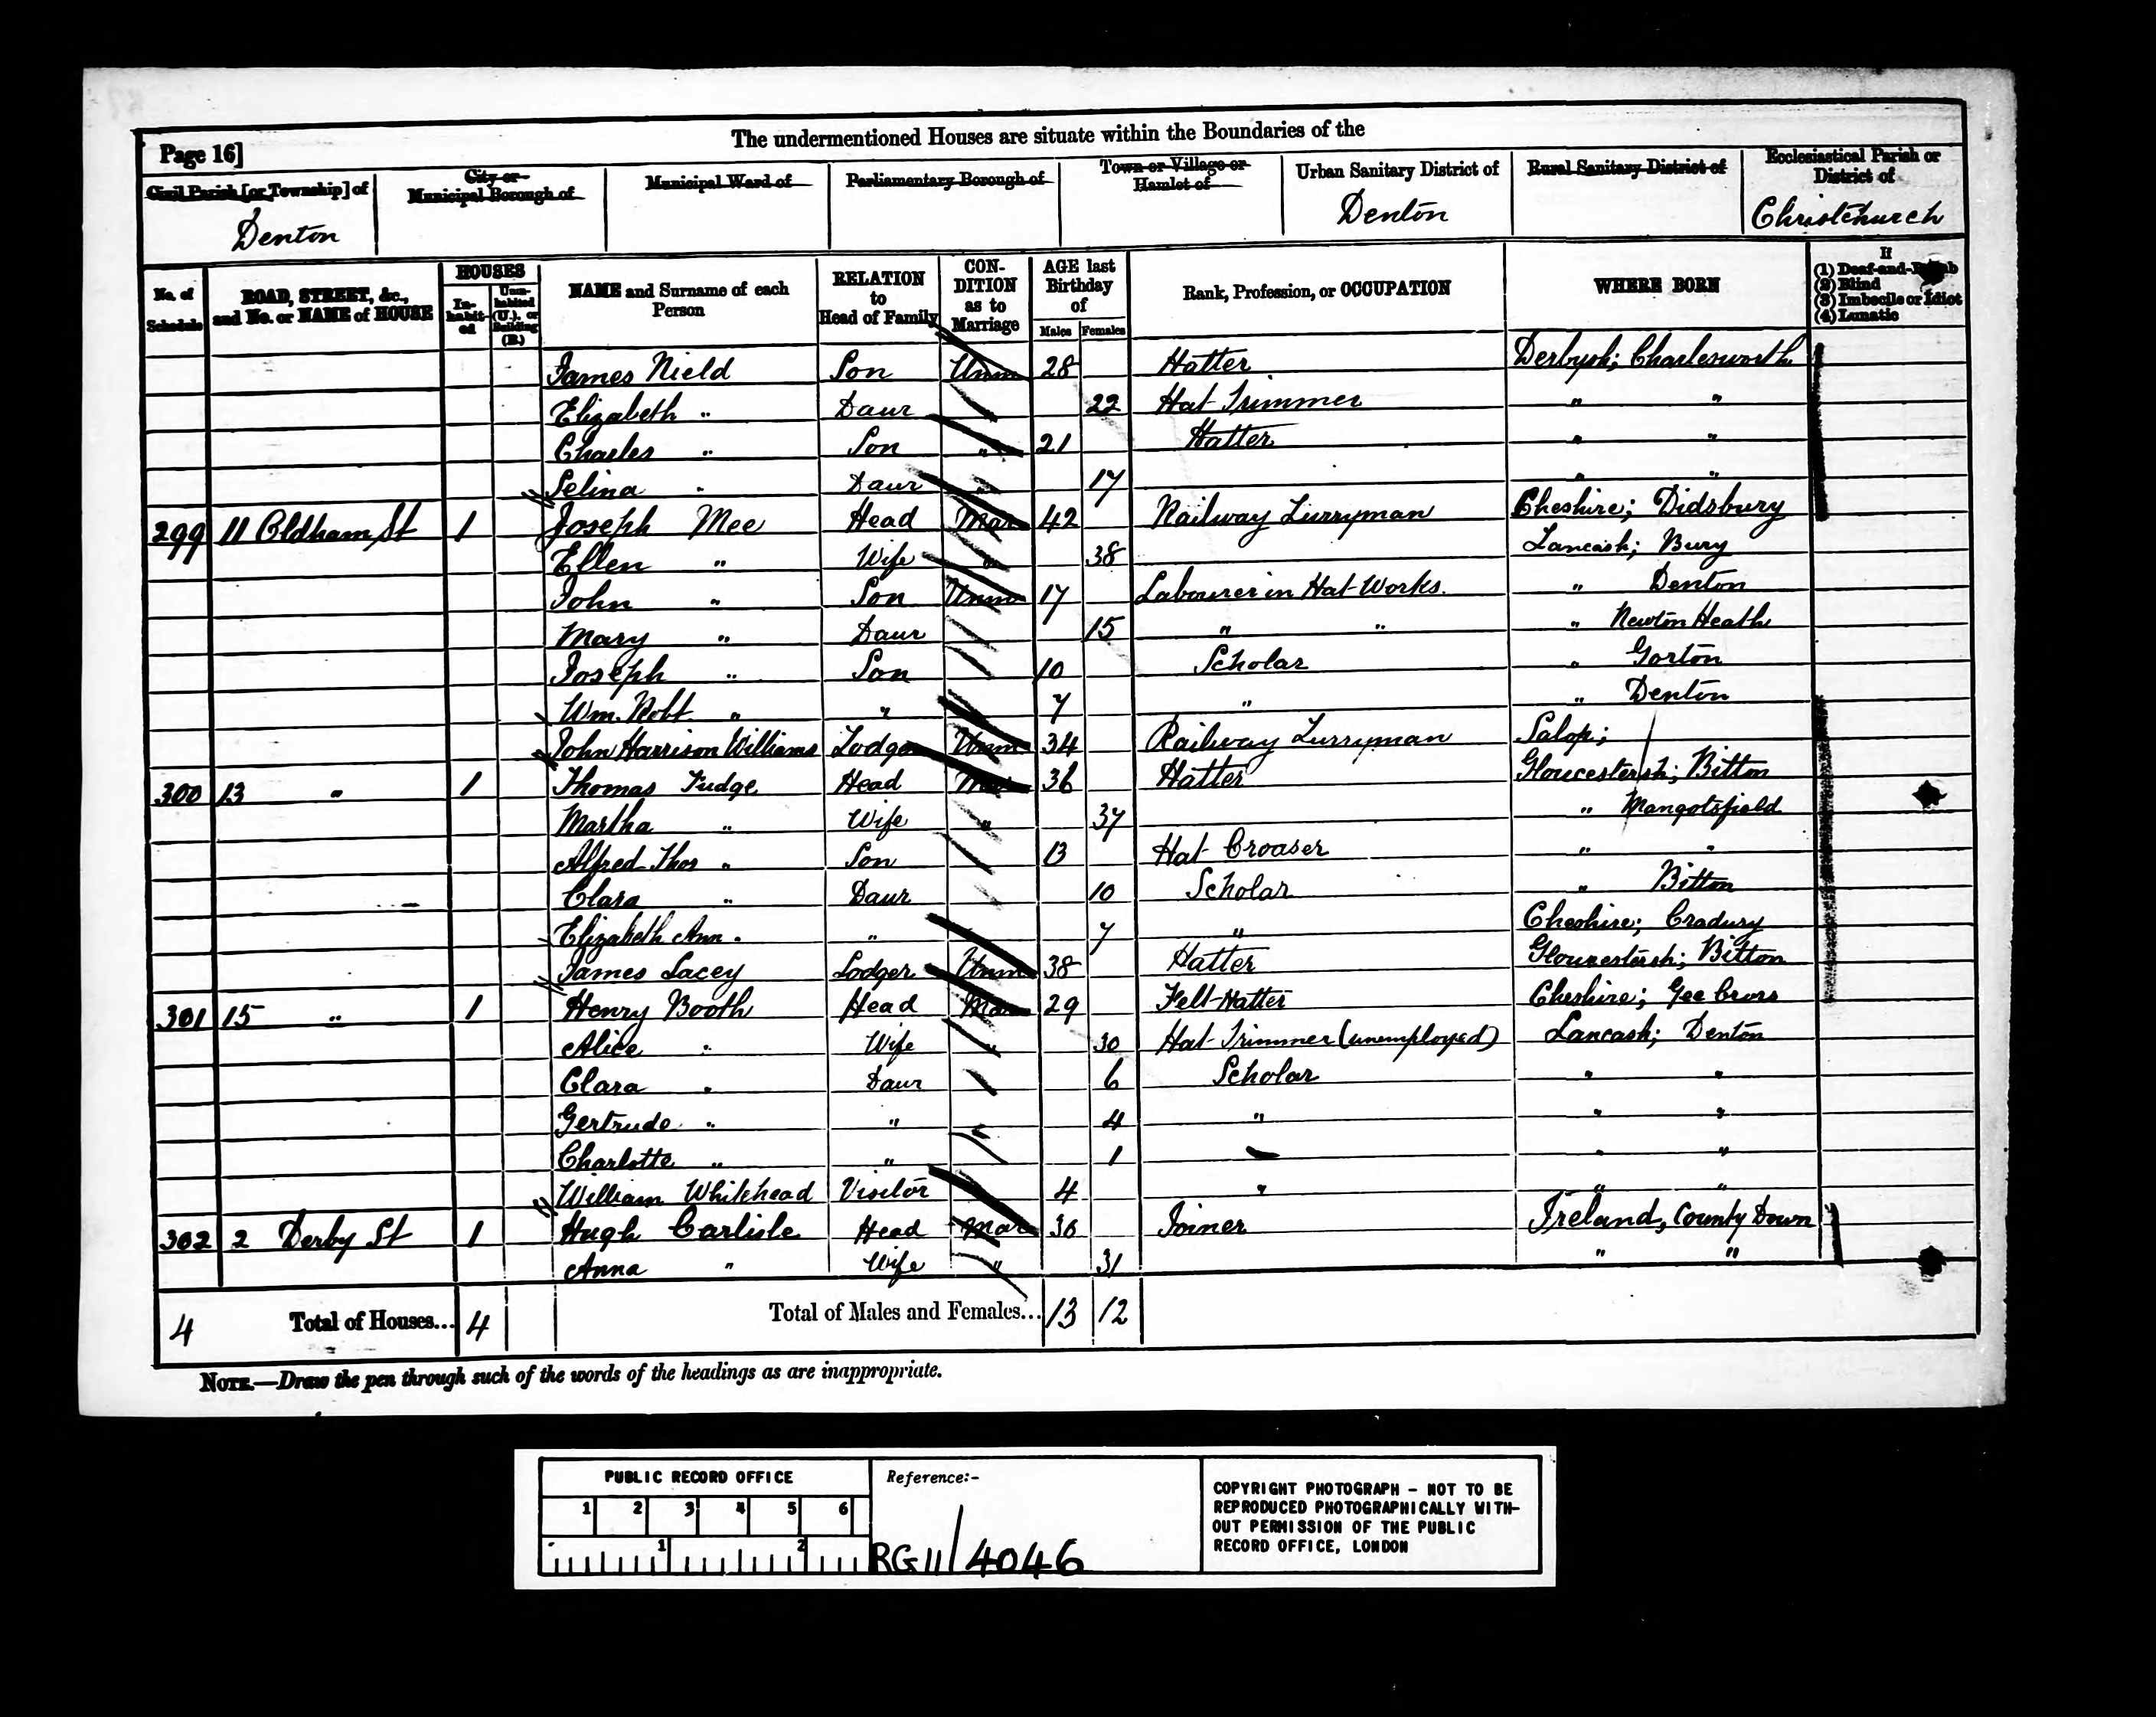 The undermentioned Houses are situate within the Boundaries of the
Page 16]
Civil Parish [or Township] of
City or Municipal Borough of
Municipal Ward of
Parliamentary Borough of
Town or Village or Hamlet of
Urban Sanitary District of
Rural Sanitary District of
Ecclesiastical Parish or District of
Denton
Denton
Christchurch
No. of Schedule
ROAD, STREET, &c., and No. or NAME of HOUSE
HOUSES
In-habit-ed
Unin-habited (U.), or Building (B.)
NAME and Surname of each Person
RELATION to Head of Family
CON-DITION as to Marriage
AGE last Birthday of
Males
Females
Rank, Profession, or OCCUPATION
WHERE BORN
If
(1) Deaf-and-Dumb
(2) Blind
(3) Imbecile or Idiot
(4) Lunatic
James Nield Son Unm 28 Hatter Derbysh; Charlesworth
Elizabeth " Daur " 22 Hat Trimmer " "
Charles " Son " 21 Hatter " "
Selina " Daur " 17 " "
299 11 Oldham St 1 Joseph Mee Head Mar 42 Railway Lurryman Cheshire; Didsbury
Ellen " Wife " 38 Lancash; Bury
John " Son Unm 17 Labourer in Hat Works. " Denton
Mary " Daur 15 " " " Newton Heath
Joseph " Son 10 Scholar " Gorton
Wm. Robt " " 7 " " Denton
John Harrison Williams Lodger Unm 34 Railway Lurryman Salop;
300 13 " 1 Thomas Fudge Head Mar 36 Hatter Gloucestersh; Bitton
Martha " Wife " 37 " Mangotsfield
Alfred Thos " Son 13 Hat Croaser " "
Clara " Daur 10 Scholar " Bitton
Elizabeth Ann " " 7 " Cheshire; Bradury
James Lacey Lodger Unm 38 Hatter Gloucestersh; Bitton
301 15 " 1 Henry Booth Head Mar 29 Felt-Hatter Cheshire; Gee Cross
Alice " Wife " 30 Hat Trimmer (unemployed) Lancash; Denton
Clara " Daur 6 Scholar " "
Gertrude " " 4 " " "
Charlotte " " 1 — " "
William Whitehead Visitor 4 " " "
302 2 Derby St 1 Hugh Carlisle Head Mar 30 Joiner Ireland, County Down
Anna " Wife " 31 " "
4 Total of Houses... 4 Total of Males and Females... 13 12
NOTE.—Draw the pen through such of the words of the headings as are inappropriate.
PUBLIC RECORD OFFICE
1 2 3 4 5 6
1 2
Reference:-
RG 11/4046
COPYRIGHT PHOTOGRAPH - NOT TO BE
REPRODUCED PHOTOGRAPHICALLY WITH-
OUT PERMISSION OF THE PUBLIC
RECORD OFFICE, LONDON